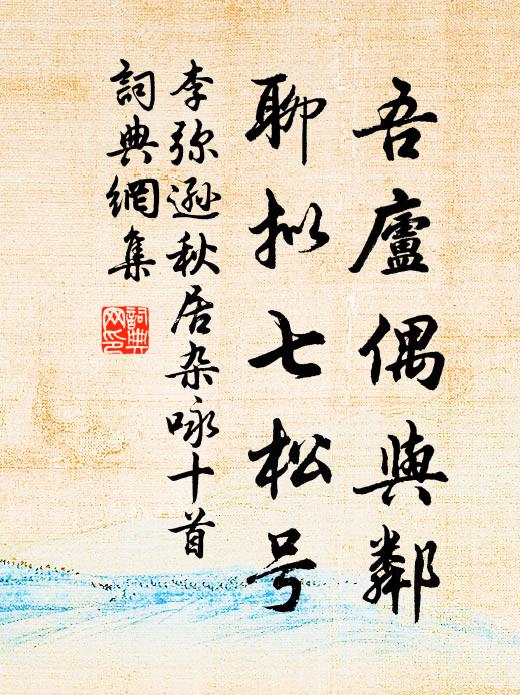 吾廬偶與鄰
聊拟七松号
李弥遜秋居杂咏十首
詞典網集
詞典网印